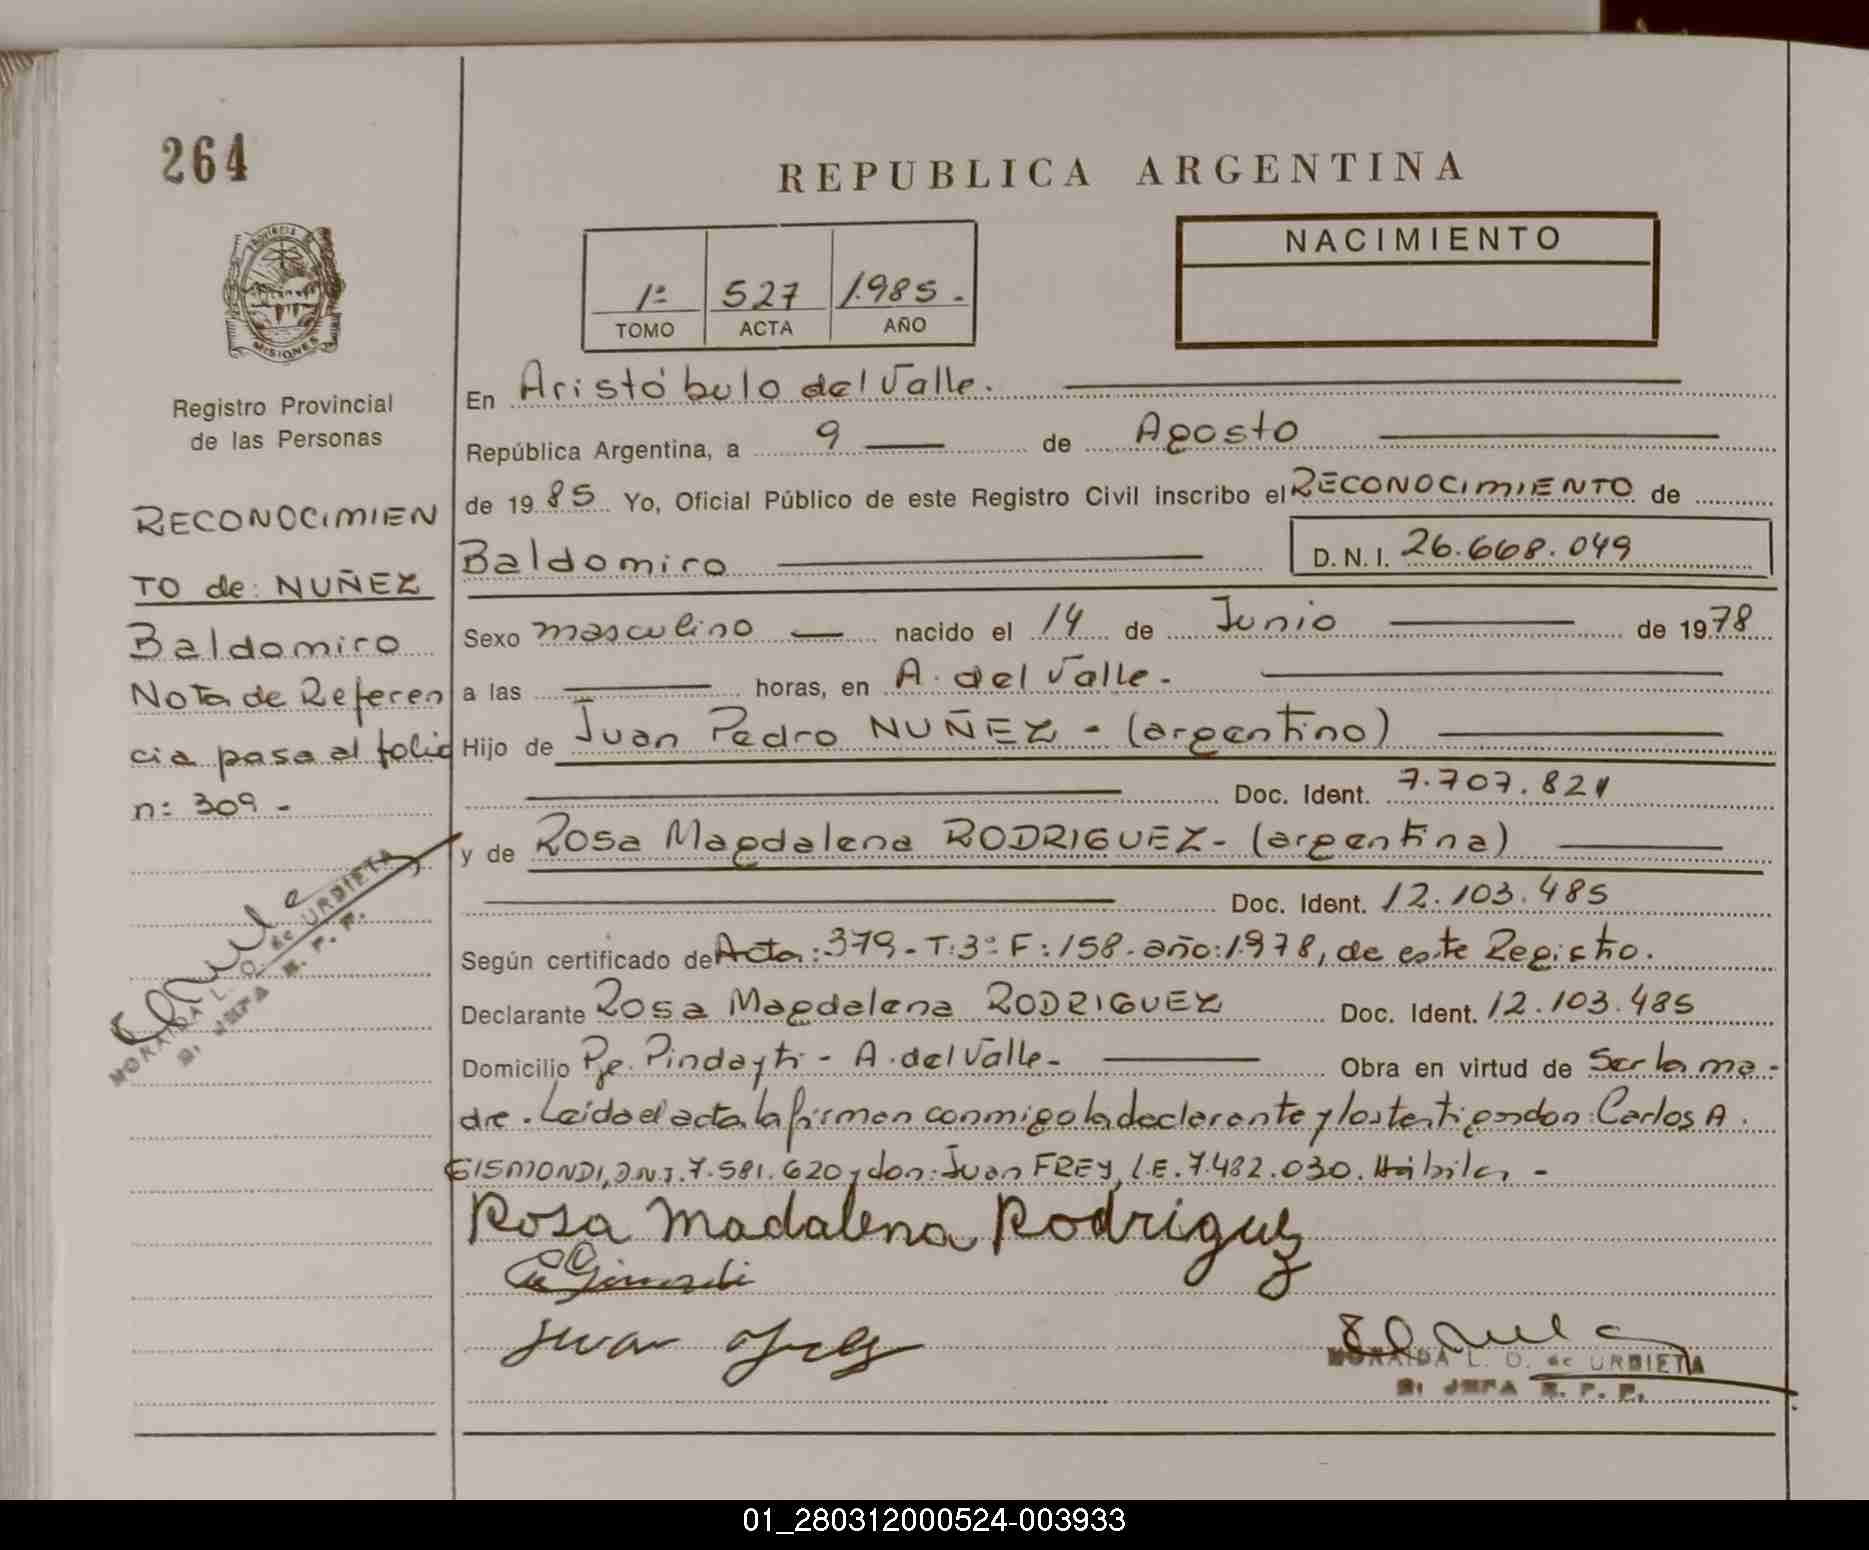 264
REPUBLICA ARGENTINA
PROVINCIA DE
MISIONES
Registro Provincial
de las Personas
1º 527 1.985.-
TOMO ACTA AÑO
NACIMIENTO
En Aristóbulo del Valle.
República Argentina, a 9 de Agosto
de 1985 Yo, Oficial Público de este Registro Civil inscribo el RECONOCIMIENTO de
Baldomiro D.N.I. 26.668.049
Sexo masculino nacido el 14 de Junio de 1978
a las horas, en A. del Valle.-
Hijo de Juan Pedro NUÑEZ - (argentino)
Doc. Ident. 7.707.821
y de Rosa Magdalena RODRIGUEZ - (argentina)
Doc. Ident. 12.103.485
Según certificado de Acta: 379 - T: 3º F: 158 - año: 1.978, de este Registro.
Declarante Rosa Magdalena RODRIGUEZ Doc. Ident. 12.103.485
Domicilio Pje. Pindayti - A. del Valle - Obra en virtud de Ser la ma-
dre. Leida el acta la firman conmigo la declarante y los testigos don: Carlos A.
GISMONDI, D.N.I. 7.581.620 y don: Juan FREY, L.E. 7.482.030. Hábiles -
Rosa Madalena Rodriguez
Juan Frey
MORAIDA L. O. de URDIETA
JEFA R. P. P.
RECONOCIMIEN
TO de: NUÑEZ
Baldomiro
Nota de Referen
cia pasa al folio
nº 309 -
MORAIDA L. O. de URDIETA
JEFA R. P. P.
01_280312000524-003933